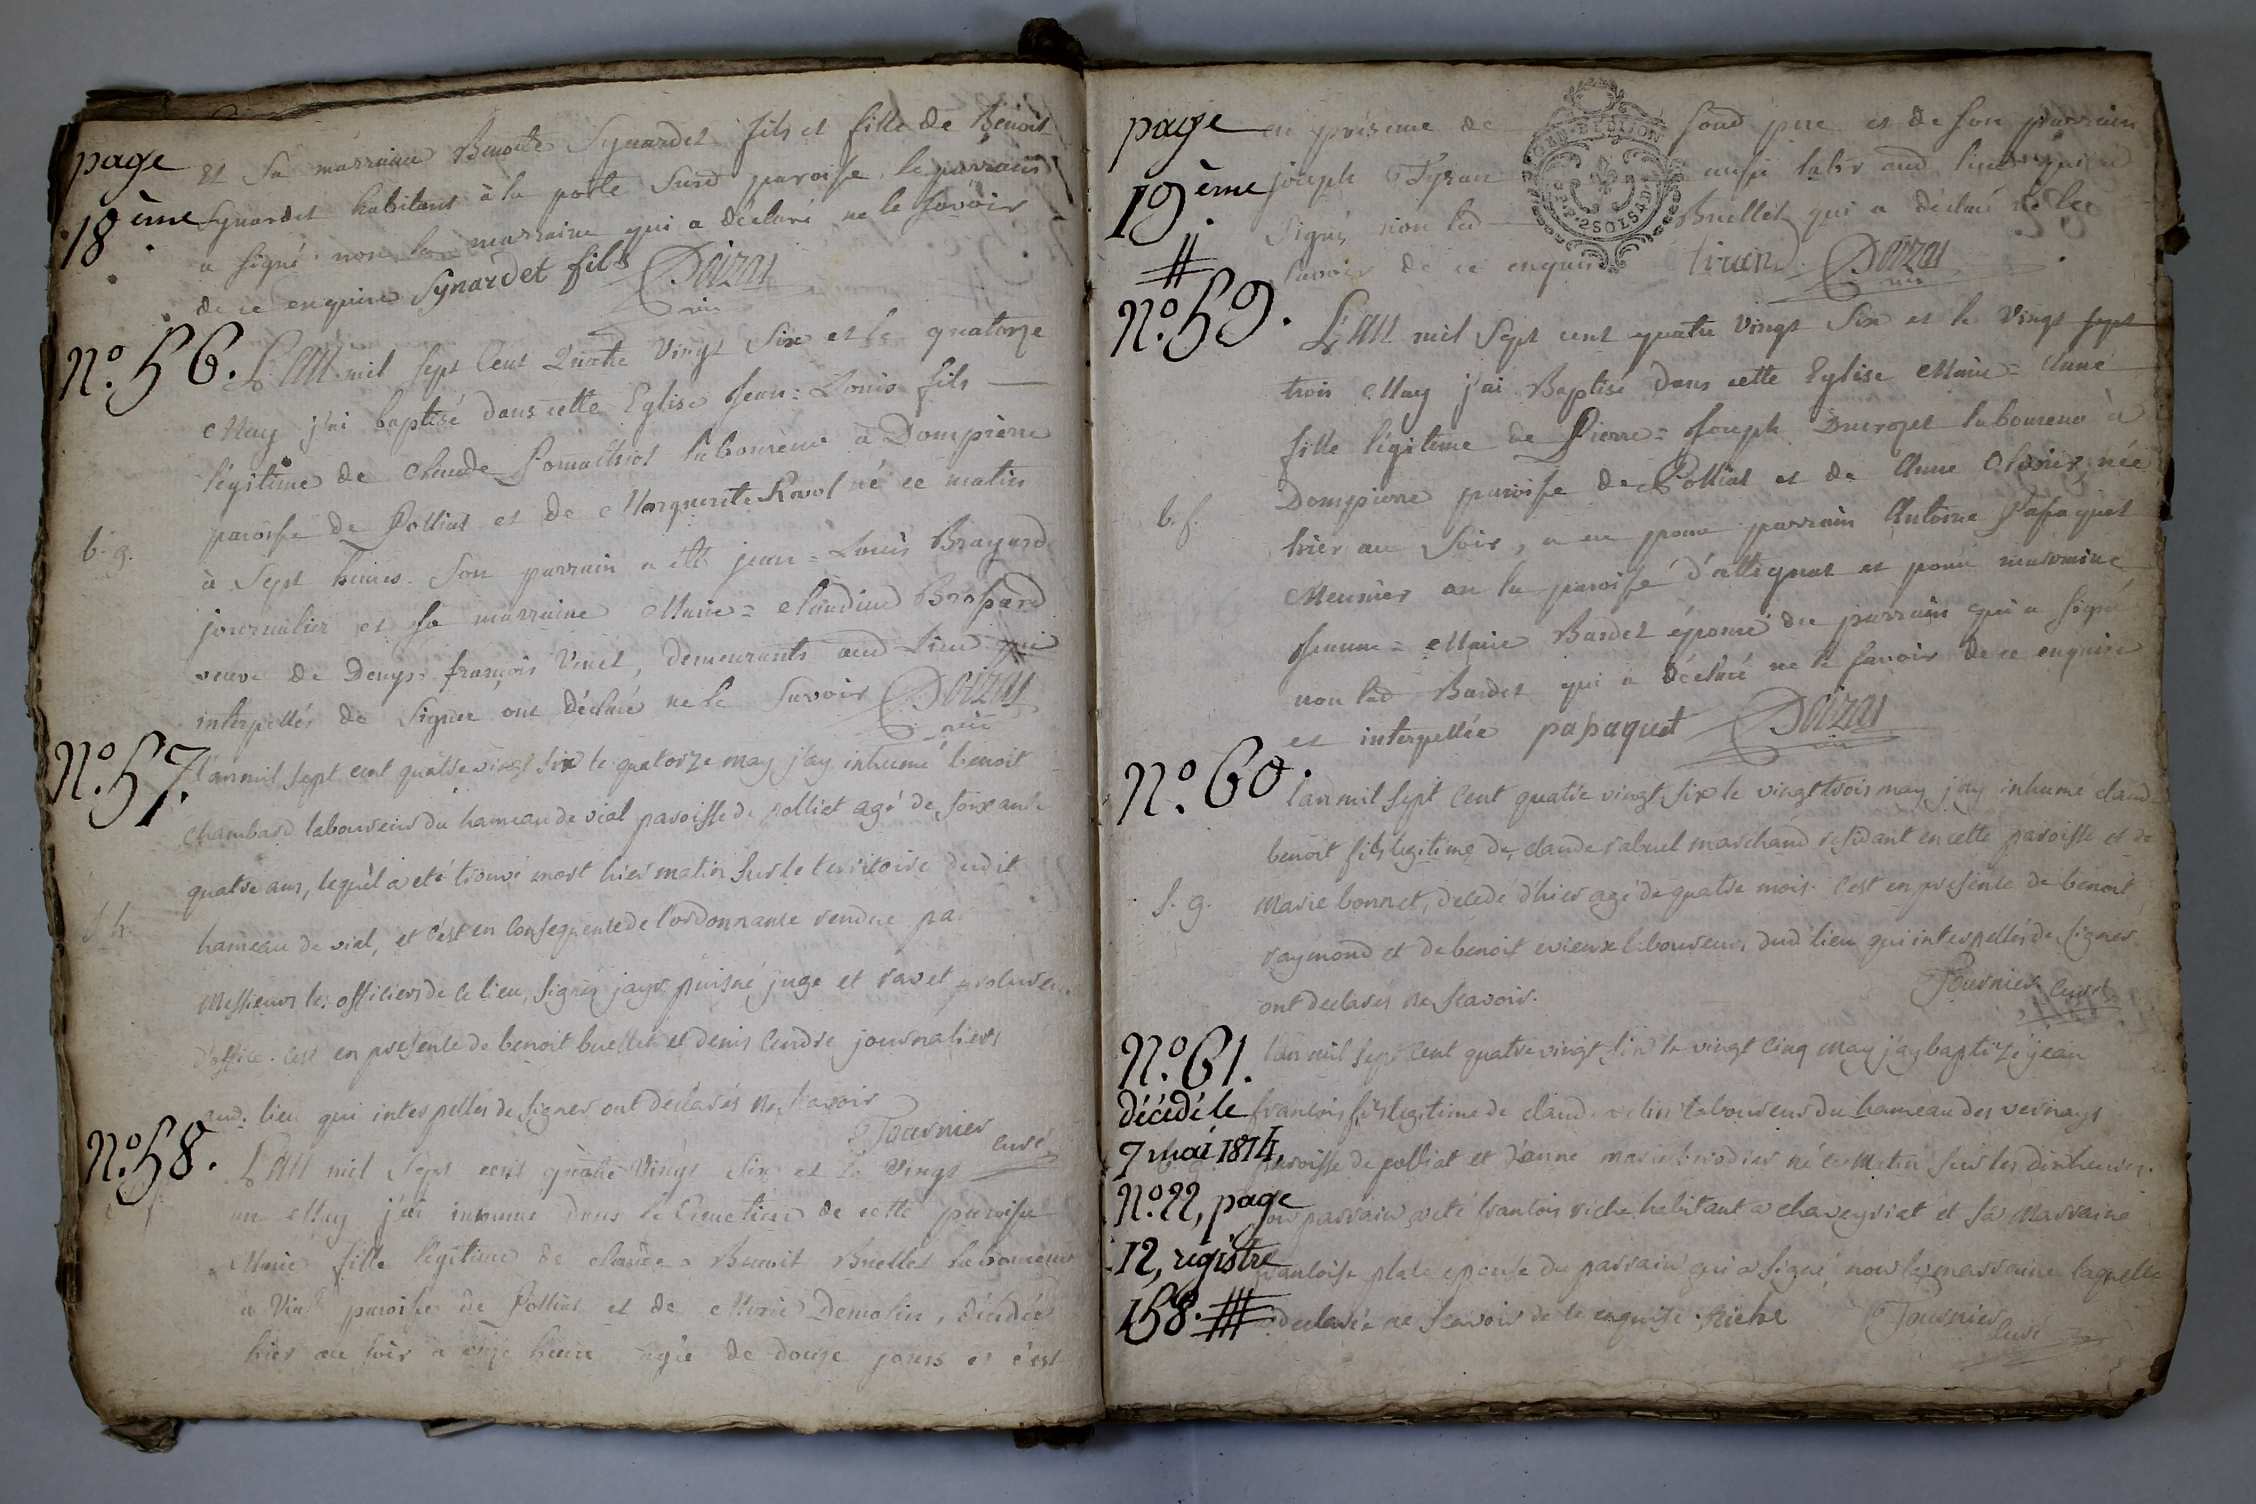 page
18ème
et Sa marraine Benoite Synardet fils et fille de Benoit
Synardet habitant à la poste Susd paroisse, le parrain
a signé non la marraine qui a déclaré ne le savoir
de ce enquise Synardet fils Doizas
vic
No. 56.
L'an mil sept Cent Quatre Vingt Six et le quatorze
May j'ai baptisé dans cette Eglise Jean = Louis fils
légitime de Claude laboureur à Dompierre
paroisse de Polliat et de Marguerite Ravol né ce matin
b. g.
à Sept heures. Son parrain a été jean = Louis Brayard
journalier et sa marraine Marie = Claudine Brossard
veuve de Denys françois Vinet, demeurants aud Lieu qui
interpellés de Signer ont déclaré ne le Savoir Doizas
vic
No. 57.
l'an mil sept cent quatre vingt six le quatorze may j'ay inhumé benoit
chambard laboureur du hameau de vial paroisse de polliat agé de soixante
quatre ans, lequel a eté trouvé mort hier matin sur le territoire dudit
s. h.
hameau de vial, et c'est en consequence de l'ordonnance rendue par
Messieurs les officiers de ce lieu, signés jayr puisné juge et ravet procureur
d'office. c'est en presence de benoit buellet et denis cendre journaliers
aud. lieu qui interpellés de signer ont declarés ne scavoir
Tournier curé
No. 58.
L'an mil Sept cent quatre Vingt Six et le Vingt
un May j'ai inhumé dans le Cimetiere de cette paroisse
Marie fille légitime de Claude = Benoit Buellet laboureur
à Vial paroisse de Polliat et de Marie Demolin, décédée
hier au soir à onze heure agée de douze jours et c'est
page
19ème
#
en présence de sond pere et de son parrain
joseph Tyran aussi labr aud lieu qui a
signé, non led Buellet qui a déclaré ne le
savoir de ce enquis tiran Doizas
vic
No. 59.
L'an mil Sept cent quatre Vingt Six et le Vingt sept
trois May j'ai Baptisé dans cette Eglise Marie = Anne
fille légitime de Pierre = Joseph Durozet laboureur à
Dompierre paroisse de Polliat et de Anne née
b. f.
hier au Soir, a eu pour parrain Antoine Papaquet
Meunier en la paroisse d'attignat et pour marraine
Jeanne = Marie Bardet épouse du parrain qui a signé
non lad Bardet qui a déclaré ne le savoir de ce enquise
et interpellée papaquet Doizas
vic
No. 60.
l'an mil sept cent quatre vingt six le vingt trois may j'ay inhumé claude
benoit fils legitime de claude rabuel marchand residant en cette paroisse et de
s. g.
Marie bonnet, decedé d'hier agé de quatre mois. c'est en presence de benoit
raymond et de benoit evieux laboureurs dud lieu qui interpellés de signer
ont declarés ne scavoir. Tournier curé
No. 61.
l'an mil sept cent quatre vingt six le vingt cinq may j'ay baptizé jean
décédé le
francois fils legitime de claude velin laboureur du hameau des vernays
7 mai 1814,
paroisse de polliat et d'anne marie brodier né ce matin sur les dix heures.
No. 22, page
son parrain a eté francois riche habitant a chaveyriat et sa Marraine
12, registre
francoise plate epouse du parrain qui a signé, non la marraine laquelle
158. #
a declarée ne scavoir de ce enquise. Riche Tournier curé